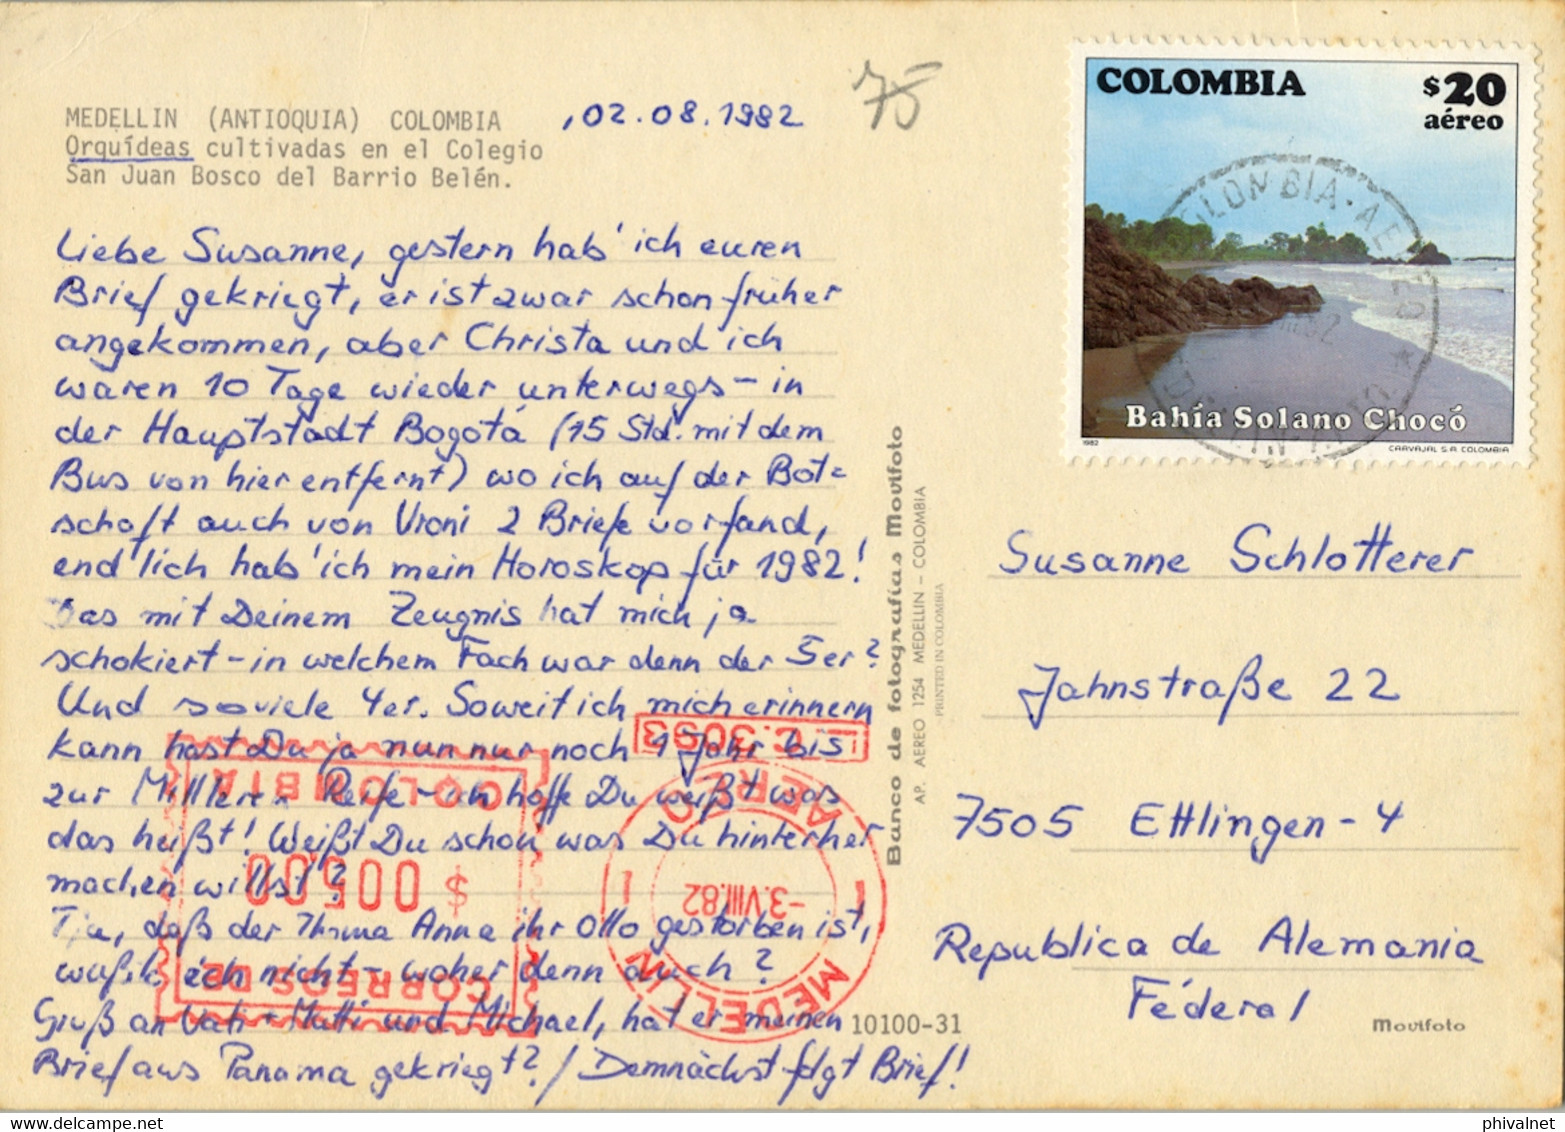 MEDELLIN (ANTIOQUIA) COLOMBIA
Orquídeas cultivadas en el Colegio
San Juan Bosco del Barrio Belén.
, 02.08.1982
75
COLOMBIA
$20
aéreo
Bahía Solano Chocó
1982
CARVAJAL S.A. COLOMBIA
Liebe Susanne, gestern hab' ich euren
Brief gekriegt, er ist zwar schon früher
angekommen, aber Christa und ich
waren 10 Tage wieder unterwegs – in
der Hauptstadt Bogotá (15 Std. mit dem
Bus von hier entfernt) wo ich auf der Bot=
schaft auch von Vroni 2 Briefe vorfand,
endlich hab' ich mein Horoskop für 1982!
Das mit Deinem Zeugnis hat mich ja
schokiert – in welchem Fach war denn der 5er?
Und soviele 4er. Soweit ich mich erinnern
kann hast Du ja nun nur noch 1 Jahr bis
zur Mittleren Reife – ich hoffe Du weißt was
das heißt! Weißt Du schon was Du hinterher
machen willst?
Tja, daß der Anna ihr Otto gestorben ist,
wußte ich nicht – woher denn auch?
Gruß an Vati + Mutti und Michael, hat er meinen
Brief aus Panama gekriegt? / Demnächst folgt Brief!
COLOMBIA
$ 005.00
CORREOS DE
L.C. 3093
AEREO
-3.VIII.82
MEDELLIN
Banco de fotografías Movifoto
AP. AEREO 1254 MEDELLIN – COLOMBIA
PRINTED IN COLOMBIA
Susanne Schlotterer
Jahnstraße 22
7505 Ettlingen – 4
Republica de Alemania
Féderal
10100-31
Movifoto
phivalnet